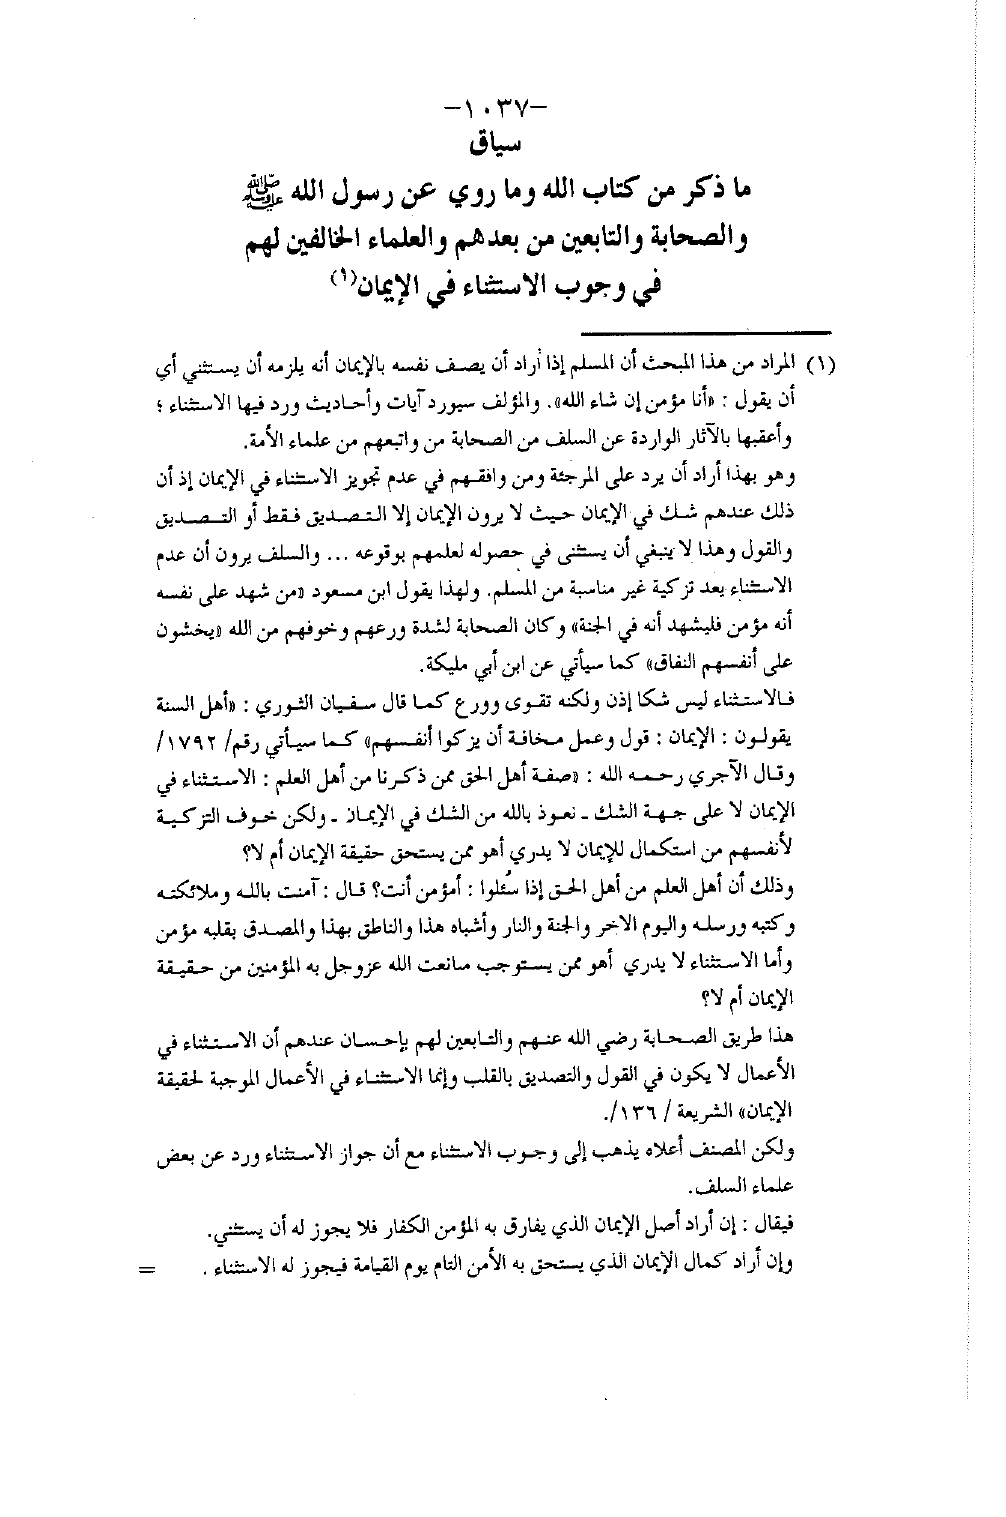 –١٠٣٧–
سياق
ما ذكر من كتاب الله وما روي عن رسول الله ﷺ
والصحابة والتابعين من بعدهم والعلماء الخالفين لهم
في وجوب الاستثناء في الإيمان(١)
(١) المراد من هذا المبحث أن المسلم إذا أراد أن يصف نفسه بالإيمان أنه يلزمه أن يستثني أي
أن يقول : «أنا مؤمن إن شاء الله». والمؤلف سيورد آيات وأحاديث ورد فيها الاستثناء ؛
وأعقبها بالآثار الواردة عن السلف من الصحابة من واتبعهم من علماء الأمة.
وهو بهذا أراد أن يرد على المرجئة ومن وافقهم في عدم تجويز الاستثناء في الإيمان إذ أن
ذلك عندهم شك في الإيمان حيث لا يرون الإيمان إلا التصديق فقط أو التصديق
والقول وهذا لا ينبغي أن يستثنى في حصوله لعلمهم بوقوعه ... والسلف يرون أن عدم
الاستثناء يعد تزكية غير مناسبة من المسلم. ولهذا يقول ابن مسعود «من شهد على نفسه
أنه مؤمن فليشهد أنه في الجنة» وكان الصحابة لشدة ورعهم وخوفهم من الله «يخشون
على أنفسهم النفاق» كما سيأتي عن ابن أبي مليكة.
فالاستثناء ليس شكا إذن ولكنه تقوى وورع كما قال سفيان الثوري : «أهل السنة
يقولون : الإيمان : قول وعمل مخافة أن يزكوا أنفسهم» كما سيأتي رقم/ ١٧٩٢/
وقال الآجري رحمه الله : «صفة أهل الحق ممن ذكرنا من أهل العلم : الاستثناء في
الإيمان لا على جهة الشك ـ نعوذ بالله من الشك في الإيمان ـ ولكن خوف التزكية
لأنفسهم من استكمال للإيمان لا يدري أهو ممن يستحق حقيقة الإيمان أم لا؟
وذلك أن أهل العلم من أهل الحق إذا سُئلوا : أمؤمن أنت؟ قال : آمنت بالله وملائكته
وكتبه ورسله واليوم الاخر والجنة والنار وأشباه هذا والناطق بهذا والمصدق بقلبه مؤمن
وأما الاستثناء لا يدري أهو ممن يستوجب مانعت الله عزوجل به المؤمنين من حقيقة
الإيمان أم لا؟
هذا طريق الصحابة رضي الله عنهم والتابعين لهم بإحسان عندهم أن الاستثناء في
الأعمال لا يكون في القول والتصديق بالقلب وإنما الاستثناء في الأعمال الموجبة لحقيقة
الإيمان» الشريعة / ١٣٦/.
ولكن المصنف أعلاه يذهب إلى وجوب الاستثناء مع أن جواز الاستثناء ورد عن بعض
علماء السلف.
فيقال : إن أراد أصل الإيمان الذي يفارق به المؤمن الكفار فلا يجوز له أن يستثني.
وإن أراد كمال الإيمان الذي يستحق به الأمن التام يوم القيامة فيجوز له الاستثناء . =